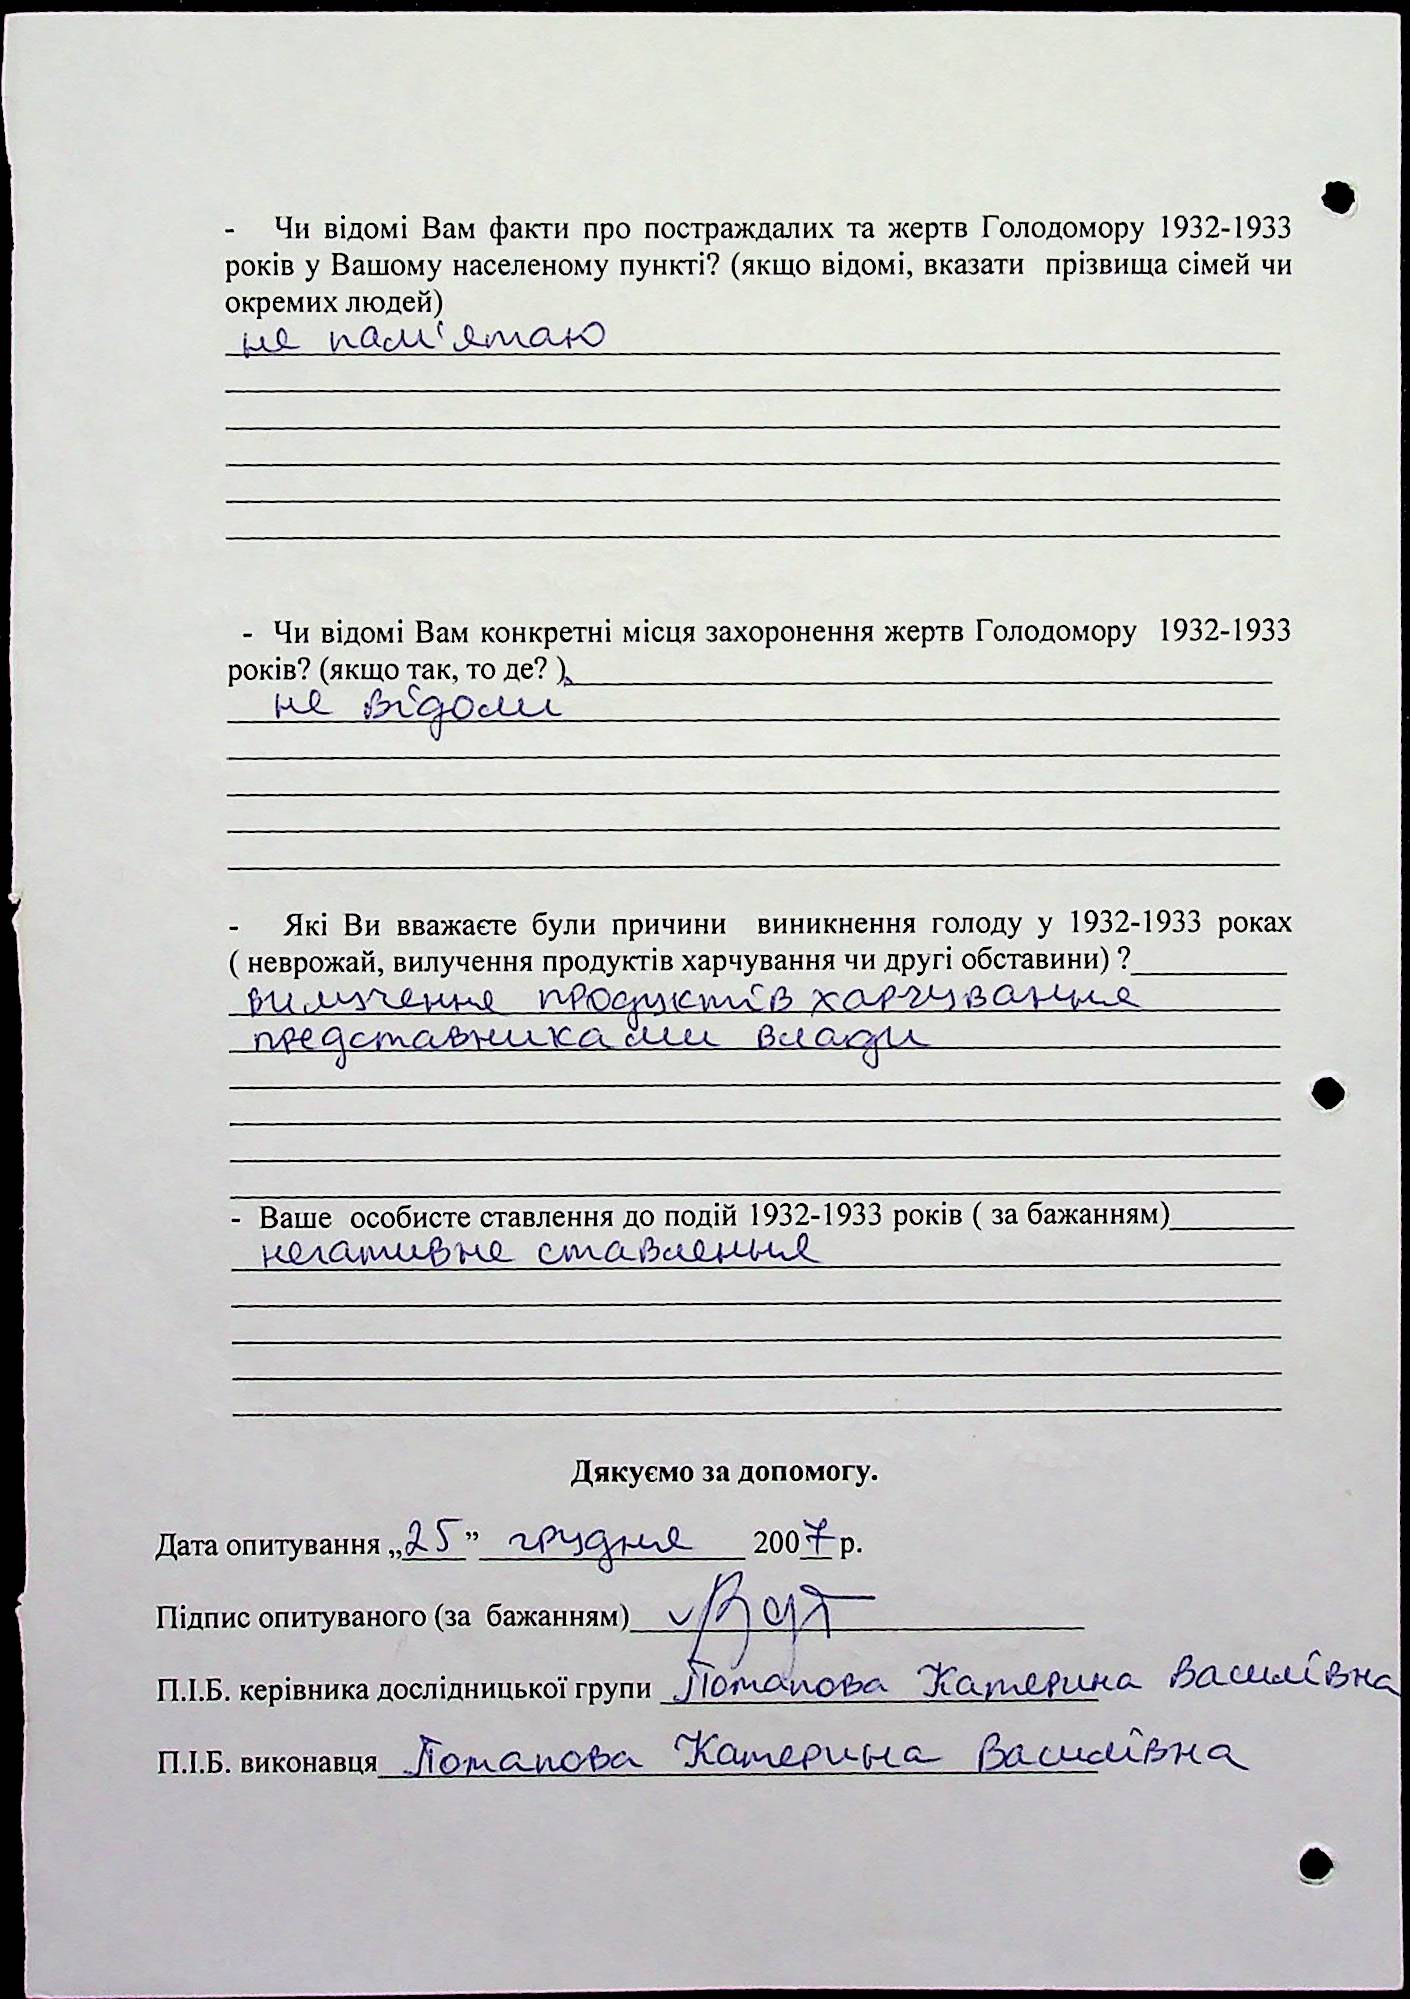 - Чи відомі Вам факти про постраждалих та жертв Голодомору 1932-1933
років у Вашому населеному пункті? (якщо відомі, вказати прізвища сімей чи
окремих людей)
не пам'ятаю
- Чи відомі Вам конкретні місця захоронення жертв Голодомору 1932-1933
років? (якщо так, то де? )
не відоми
- Які Ви вважаєте були причини виникнення голоду у 1932-1933 роках
( неврожай, вилучення продуктів харчування чи другі обставини) ?
вилучення продуктів харчування
представниками влади
- Ваше особисте ставлення до подій 1932-1933 років ( за бажанням)
негативне ставлення
Дякуємо за допомогу.
Дата опитування „25” грудня 2007 р.
Підпис опитуваного (за бажанням)
П.І.Б. керівника дослідницької групи Потапова Катерина Василівна
П.І.Б. виконавця Потапова Катерина Василівна